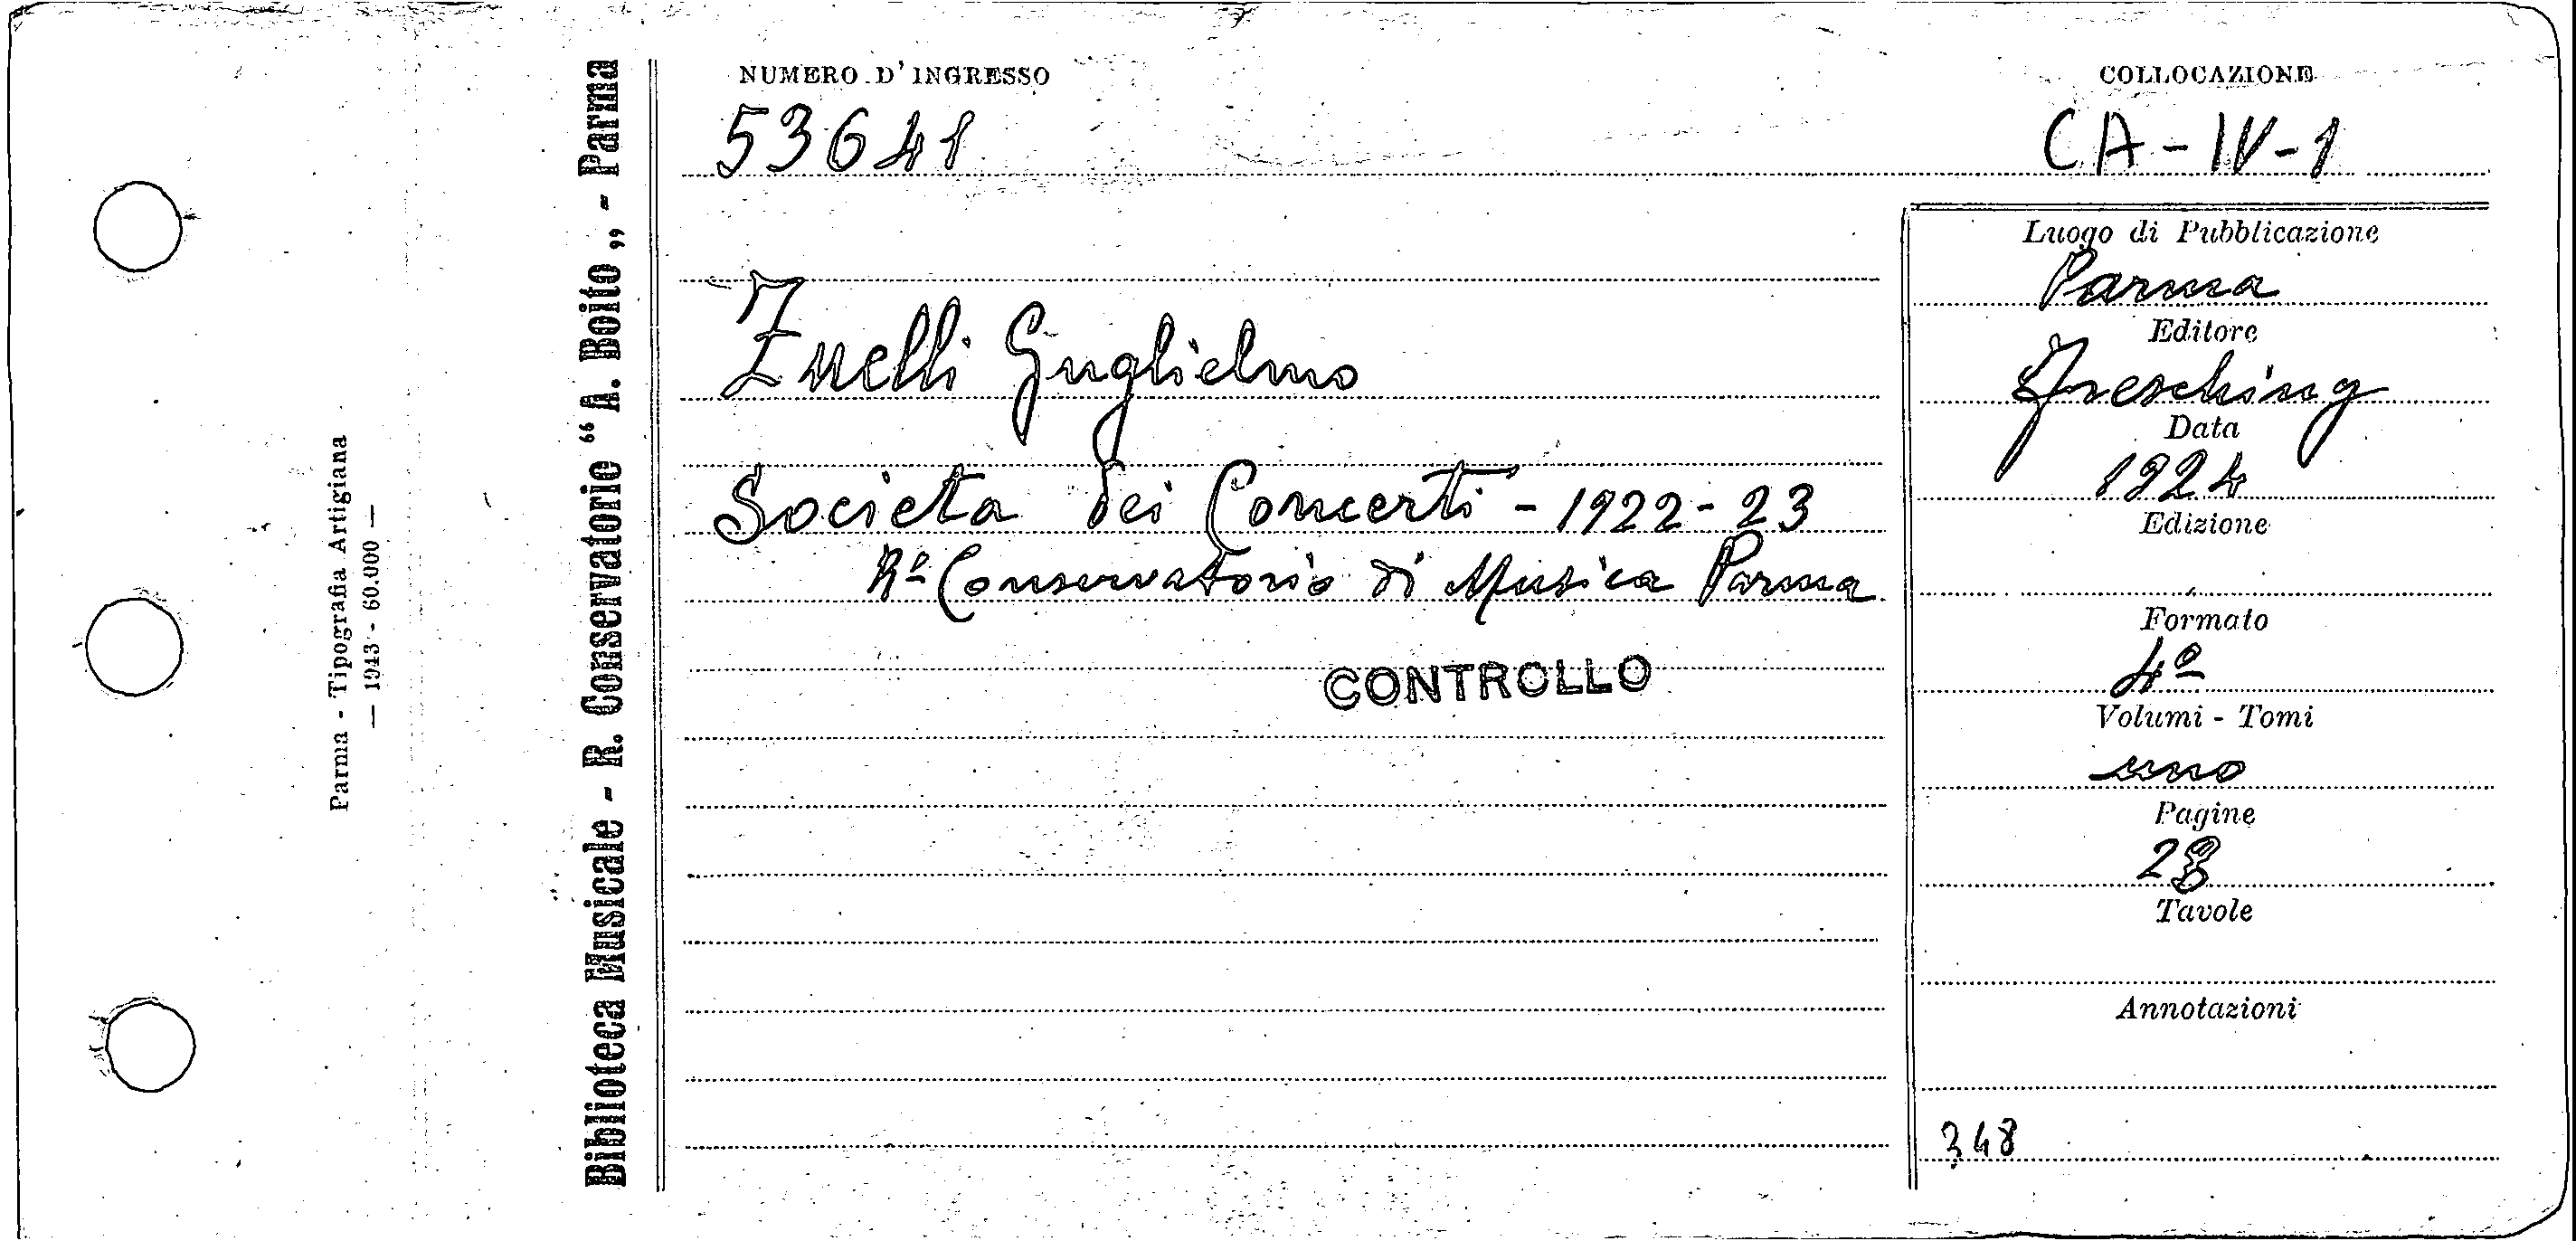 NUMERO D'INGRESSO
53641
COLLOCAZIONE
CA-IV-1
Zuelli Guglielmo
Societa dei Concerti - 1922-23
Rº Conservatorio di Musica Parma
CONTROLLO
Luogo di Pubblicazione
Parma
Editore
Fresching
Data
1924
Edizione
Formato
4º
Volumi - Tomi
uno
Pagine
28
Tavole
Annotazioni
348
Biblioteca Musicale - R. Conservatorio “A. Boito„ - Parma
Parma - Tipografia Artigiana
— 1943 - 60.000 —